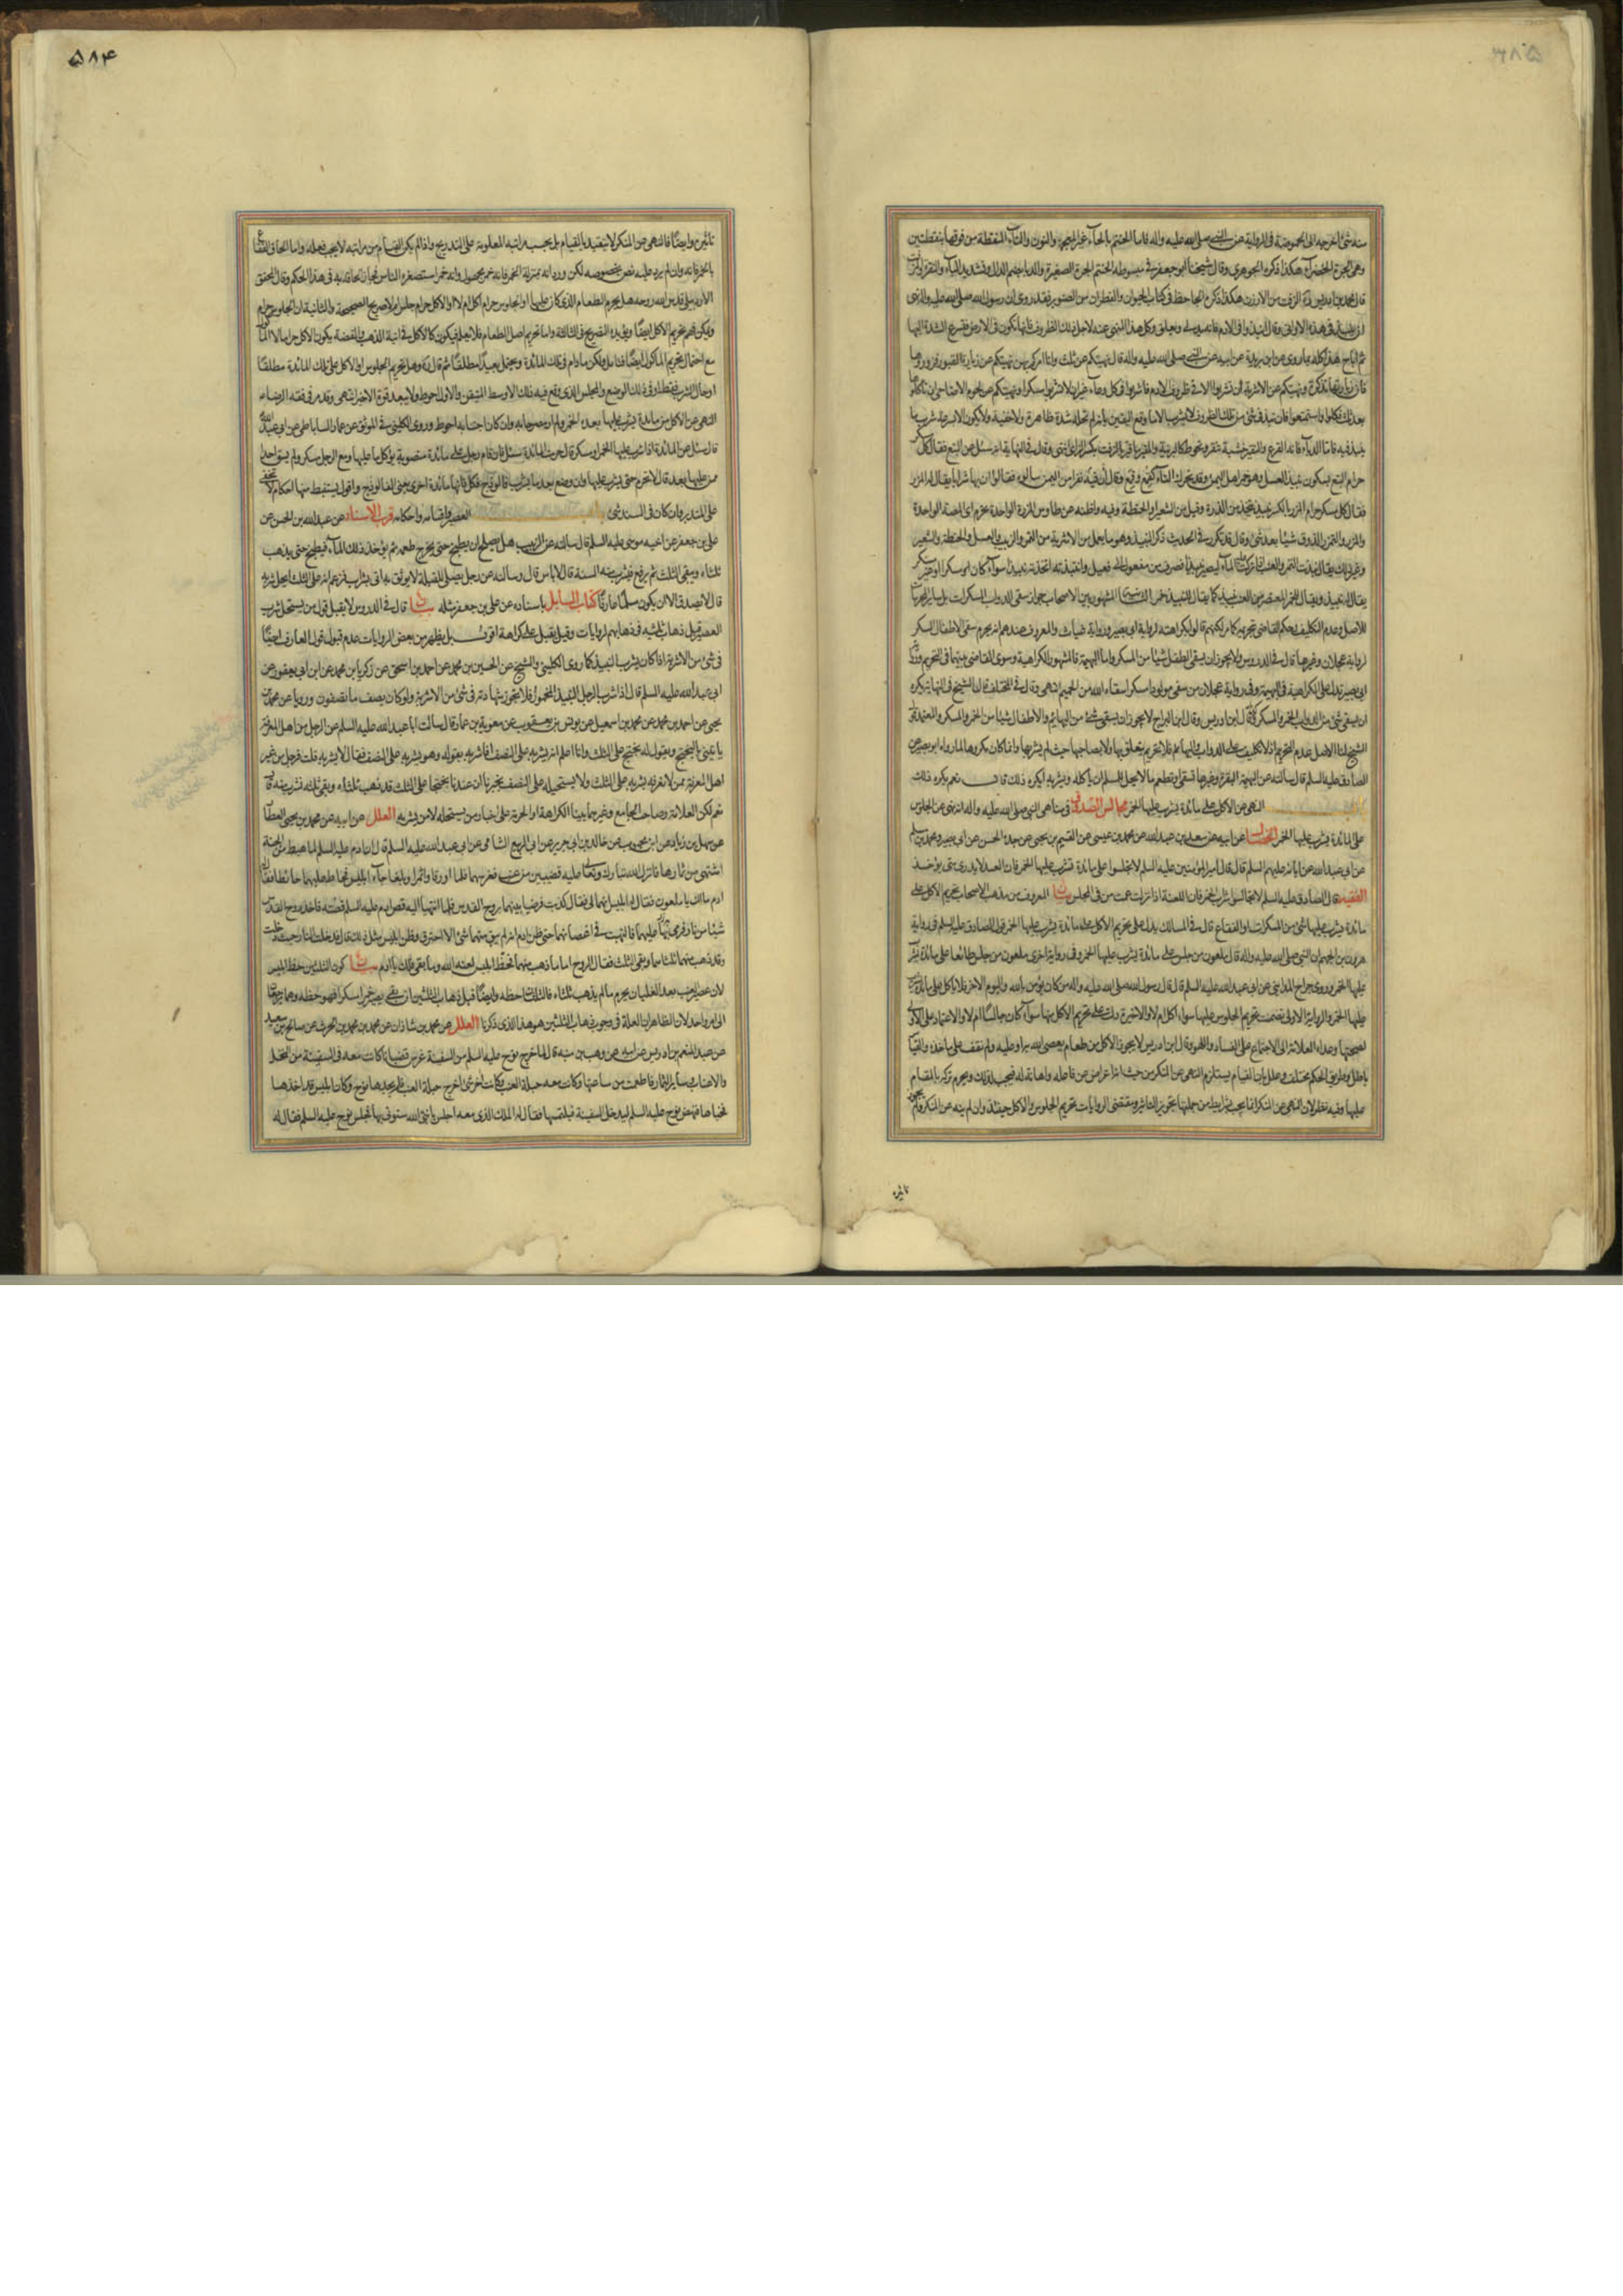 ۳۸۵
منه شئ اخرجه الى الحموضة فى الرواية عن النبى صلى الله عليه واله فاما الحنتم بالحاء غير المعجمة والنون والتاء المنقطة من فوقها بنقطتين
وهى الجرة الخضراء هكذا ذكره الجوهرى وقال شيخنا ابو جعفر فى مبسوطه الحنتم الجرة الصغيرة والدباء بضم الدال وتشديد الباء والنقير
قال محمد بن ادريس المزفت من الاوزن هكذا ذكره الجاحظ فى كتاب الحيوان والقطران من الصنوبر فقد روى ان رسول الله صلى الله عليه واله نهى
ان ينبذ فى هذه الاوانى وقال انبذوا فى الادم فانه يوكى ويعلق وكل هذا المنهى عنه لاجل الظروف فانها تكون فى الارض فتسرع الشدة اليها
ثم اباح هذا كله بما روى عن ابى بريدة عن ابيه عن النبى صلى الله عليه واله قال نهيتكم عن ثلث وانا امركم بهن نهيتكم عن زيارة القبور فزوروها
فان زيارتها تذكرة ونهيتكم عن الاشربة ان تشربوا الا فى ظروف الادم فاشربوا فى كل وعاء غير ان لا تشربوا مسكرا ونهيتكم عن لحوم الاضاحى ان تاكلوها
بعد ثلث فكلوا واستمتعوا فان نبذ فى شئ من تلك الظروف لا يشرب الا ما وقع اليقين بانه لم تحله شدة ظاهرة ولا خفية ولا يكون الا بسرعة شرب ما
ينبذ فيه فاما الدباء فانه القرع والنقير خشبة تنقر وتخوط كالبرنية والمقير ما قير بالزفت بكسر الزاى انتهى وقال فى النهاية انه سئل عن البتع فقال كل
حرام البتع بسكون نبيذ العسل وهو خمر اهل اليمن وقد تحرك التاء كقمع وقمع وقال ان نفرا من اليمن سالوه فقالوا ان بها شرابا يقال له المزر
فقال كل مسكر حرام المزر بالكسر نبيذ يتخذ من الذرة وقيل من الشعير او الحنطة وفيه واظنه عن طاوس المزرة الواحدة تحرم اى المصة الواحدة
والمزر والتمزر الذوق شيئا بعد شئ وقال قد تكرر فى الحديث ذكر النبيذ وهو ما يعمل من الاشربة من التمر والزبيب والعسل والحنطة والشعير
وغير ذلك يقال نبذت التمر والعنب اذا تركت عليه الماء ليصير نبيذا فصرف من مفعول الى فعيل وانتبذته اتخذته نبيذا سواء كان مسكرا او غير مسكر
يقال له نبيذ ويقال للخمر المعتصر من العنب نبيذ كما يقال للنبيذ خمر المشهور بين الاصحاب جواز سقى الدواب المسكرات بل سائر المحرمات
للاصل وعدم التكليف وحكم القاضى بتحريمه لكنهم قالوا بكراهته لرواية ابى بصير ورواية غياث والمعروف عندهم انه يحرم سقى الاطفال المسكر
لرواية عجلان وغيرها قال فى الدروس ولا يجوز ان يسقى الطفل شيئا من المسكر واما البهيمة فالمشهور الكراهية وسوى القاضى بينهما فى التحريم
ابى بصير تدل على الكراهية فى البهيمة وفى رواية عجلان من سقى مولودا مسكرا سقاه الله من الحميم انتهى وقال فى المختلف قال الشيخ فى النهاية يكره
ان يسقى شئ من الدواب الخمر والمسكر قال ابن ادريس وقال ابن البراج لا يجوز ان يسقى شئ من البهائم والاطفال شيئا من الخمر والمسكر والمعتمد قول
الشيخ لنا الاصل عدم التحريم اذ لا تكليف على الدواب والبهائم فلا تحريم يتعلق بها ولا بصاحبها حيث لم يشربها وانما كان مكروها لما رواه ابو بصير عن
الصادق عليه السلم قال سالته عن البهيمة البقرة وغيرها تسقى او تطعم ما لا يحل للمسلم ان ياكله ويشربه ايكره ذلك قال نعم يكره ذلك
النهى عن الاكل على مائدة يشرب عليها الخمر مجالس الصدوق فى مناهى النبى صلى الله عليه واله انه نهى عن الجلوس
على المائدة يشرب عليها الخمر الخصال عن ابيه عن سعد بن عبدالله عن محمد بن عيسى عن القسم بن يحيى عن جده الحسن عن ابى بصير ومحمد بن مسلم
عن ابى عبدالله عن ابائه عليهم السلم قال قال امير المؤمنين عليه السلم لا تجلسوا على مائدة تشرب عليها الخمر فان العبد لا يدرى متى يؤخذ
الفقيه قال الصادق عليه السلم لا تجالس شراب الخمر فان اللعنة اذا نزلت عمت من فى المجلس بيان المعروف من مذهب الاصحاب تحريم الاكل على
مائدة يشرب عليها شئ من المسكرات او الفقاع قال فى المسالك يدل على تحريم الاكل على مائدة يشرب عليها الخمر قول الصادق عليه السلم فى رواية
هرون بن الجهم ان النبى صلى الله عليه واله قال ملعون من جلس على مائدة يشرب عليها الخمر وفى رواية اخرى ملعون من جلس طائعا على مائدة يشرب
عليها الخمر وروى جراح المداينى عن ابى عبدالله عليه السلم قال قال رسول الله صلى الله عليه واله من كان يؤمن بالله واليوم الاخر فلا ياكل على مائدة يشرب
عليها الخمر والرواية الاولى تضمنت تحريم الجلوس عليها سواء اكل ام لا والاخيرة دلت على تحريم الاكل منها سواء كان جالسا ام لا والاعتماد على الاولى
لصحتها وعداه العلامة الى الاجتماع على الفساد واللهو وقال ابن ادريس لا يجوز الاكل من طعام يعصى الله به او عليه ولم نقف على ماخذه والقياس
باطل وطريق الحكم مختلف وعلل بان القيام يستلزم النهى عن المنكر من حيث انه اعراض عن فاعله واهانة له فيجب لذلك ويحرم تركه بالمقام
عليها وفيه نظر لان النهى عن المنكر انما يجب بشرايط من جملتها تجويز التاثير ومقتضى الروايات تحريم الجلوس والاكل حينئذ وان لم ينه عن المنكر ولم يجوز
تاثيره
۵۸۴
تاثيره وايضا فالنهى عن المنكر لا يتقيد بالقيام بل بحسب مراتبه المعلومة على التدريج واذا لم يكن القيام من مراتبه لا يجب فعله واما الحاق الفقاع
بالخمر فانه وان لم يرد عليه نص بخصوصه لكن ورد انه بمنزلة الخمر وانه خمر مجهول وانه خمر استصغره الناس فجاز الحاقه به فى هذا الحكم وقال المحقق
الاردبيلى قدس الله روحه هل يحرم الطعام الذى كان عليها او الجلوس حرام اكل ام لا او الاكل حرام جلس ام لا صريح الصحيحة والثانية ان الجلوس حرام
ويمكن فهم تحريم الاكل ايضا ويؤيده التصريح فى الثالثة واما تحريم اصل الطعام فلا يعلم فيكون كالاكل فى انية الذهب والفضة يكون الاكل حراما لا الماكول
مع احتمال تحريم الماكول ايضا فتامل ولكن ما دام فى تلك المائدة ويحتمل بعيدا مطلقا ثم قال ره وهل تحريم الجلوس او الاكل على تلك المائدة مطلقا
او حال الشرب فقط او فى ذلك الوضع والمجلس الذى وقع فيه ذلك الاوسط المتيقن والاول احوط ولا يبعد قوة الاخير انتهى وقد مر فى فقه الرضا عليه
النهى عن الاكل من مائدة يشرب عليها بعدك الخمر ولم اره مصرحا به وان كان اجتنابه احوط وروى الكلينى فى الموثق عن عمار الساباطى عن ابى عبدالله
قال سئل عن المائدة اذا شرب عليها الخمر او مسكر قال حرمت المائدة سئل فان قام رجل على مائدة منصوبة يؤكل ما عليها ومع الرجل مسكر ولم يسق احدا
ممن عليها بعد قال لا تحرم حتى يشرب عليها وان وضع بعد ما يشرب فالوذج فكل فانها مائدة اخرى يعنى الفالوذج واقول يستنبط منها احكام لا تخفى
على المتدبر وان كان فى السند شئ باب العصير واقسامه واحكامه قرب الاسناد عن عبدالله بن الحسن عن
على بن جعفر عن اخيه موسى عليه السلم قال سالته عن الزبيب هل يصلح ان يطبخ حتى يخرج طعمه ثم يؤخذ ذلك الماء فيطبخ حتى يذهب
ثلثاه ويبقى الثلث ثم يرفع فيشرب منه السنة قال لا باس قال وسالته عن رجل يصلى للقبلة لا يوثق به اتى بشراب فزعم انه على الثلث ايحل شربه
قال لا يصدق الا ان يكون مسلما عارفا كتاب المسائل باسناده عن على بن جعفر مثله بيان قال فى الدروس لا يقبل قول من يستحل شرب
العصير قبل ذهاب ثلثيه فى ذهابهم لروايات وقيل يقبل على كراهة اقول بل يظهر من بعض الروايات عدم قبول قول العارف ايضا
فى شئ من الاشربة اذا كان يشرب النبيذ كما روى الكلينى والشيخ عن الحسين بن محمد عن احمد بن اسحق عن زكريا بن محمد عن ابن ابى يعفور عن
ابى عبدالله عليه السلم قال اذا شرب الرجل النبيذ المخمور فلا تجوز شهادته فى شئ من الاشربة ولو كان يصف ما تصفون ورويا عن محمد بن
يحيى عن احمد بن محمد عن محمد بن اسمعيل عن يونس بن يعقوب عن معوية بن عمار قال سالت ابا عبدالله عليه السلم عن الرجل من اهل المعرفة
ياتينى بالبختج ويقول قد طبخ على الثلث وانا اعلم انه يشربه على النصف افاشربه بقوله وهو يشربه على النصف فقال لا تشربه قلت فرجل من غير
اهل المعرفة ممن لا نعرفه يشربه على الثلث ولا يستحله على النصف يخبرنا ان عنده بختجا على الثلث قد ذهب ثلثاه وبقى ثلثه نشرب منه قال
نعم لكن العلامة وصاحب الجامع وغيرهما بينا الكراهة او الحرمة على اخبار من يستحله لا من يشربه العلل عن ابيه عن محمد بن يحيى العطار
عن سهل بن زياد عن ابن محبوب عن خالد بن جرير عن ابى الربيع الشامى عن ابى عبدالله عليه السلم قال ان ادم عليه السلم لما هبط من الجنة
اشتهى من ثمارها فانزل الله تبارك وتعالى عليه قضيبين من عنب فغرسهما فلما اورقا واثمرا وبلغا جاء ابليس فحاط عليهما حائطا فقال له
ادم ما لك يا ملعون فقال له ابليس انهما لى فقال كذبت فرضيا بينهما بروح القدس فلما انتهيا اليه قص ادم عليه السلم قصته فاخذ روح القدس
شيئا من نار فرمى بها عليهما فالتهبت فى اغصانهما حتى ظن ادم انه لم يبق منهما شئ الا احترق وظن ابليس مثل ذلك قال فدخلت النار حيث دخلت
وقد ذهب منهما ثلثاهما وبقى الثلث فقال الروح اما ما ذهب منهما فحظ ابليس لعنه الله وما بقى فلك يا ادم بيان كون الثلثين حظ ابليس
لان عصير العنب بعد الغليان يحرم ما لم يذهب ثلثاه فالثلثان حظه وايضا قبل ذهاب الثلثين ان بقى يصير خمرا مسكرا فهو حظه
الى امر واحد لان الظاهر ان العلة فى وجوب ذهاب الثلثين هو هذا الذى ذكرنا العلل عن محمد بن شاذان عن محمد بن محمد بن الحرث عن صالح بن سعيد
عن عبد المنعم بن ادريس عن ابيه عن وهب بن منبه قال لما خرج نوح عليه السلم من السفينة غرس قضبانا كانت معه فى السفينة من النخل
والاعناب وسائر الثمار فاطعمت من ساعتها وكانت معه حبلة العنب وكانت اخر شئ اخرج حبلة العنب فلم يجدها نوح وكان ابليس قد اخذها
فخباها فنهض نوح عليه السلم ليدخل السفينة فيلتمسها فقال له الملك الذى معه اجلس يا نبى الله ستؤتى بها فجلس نوح عليه السلم فقال له